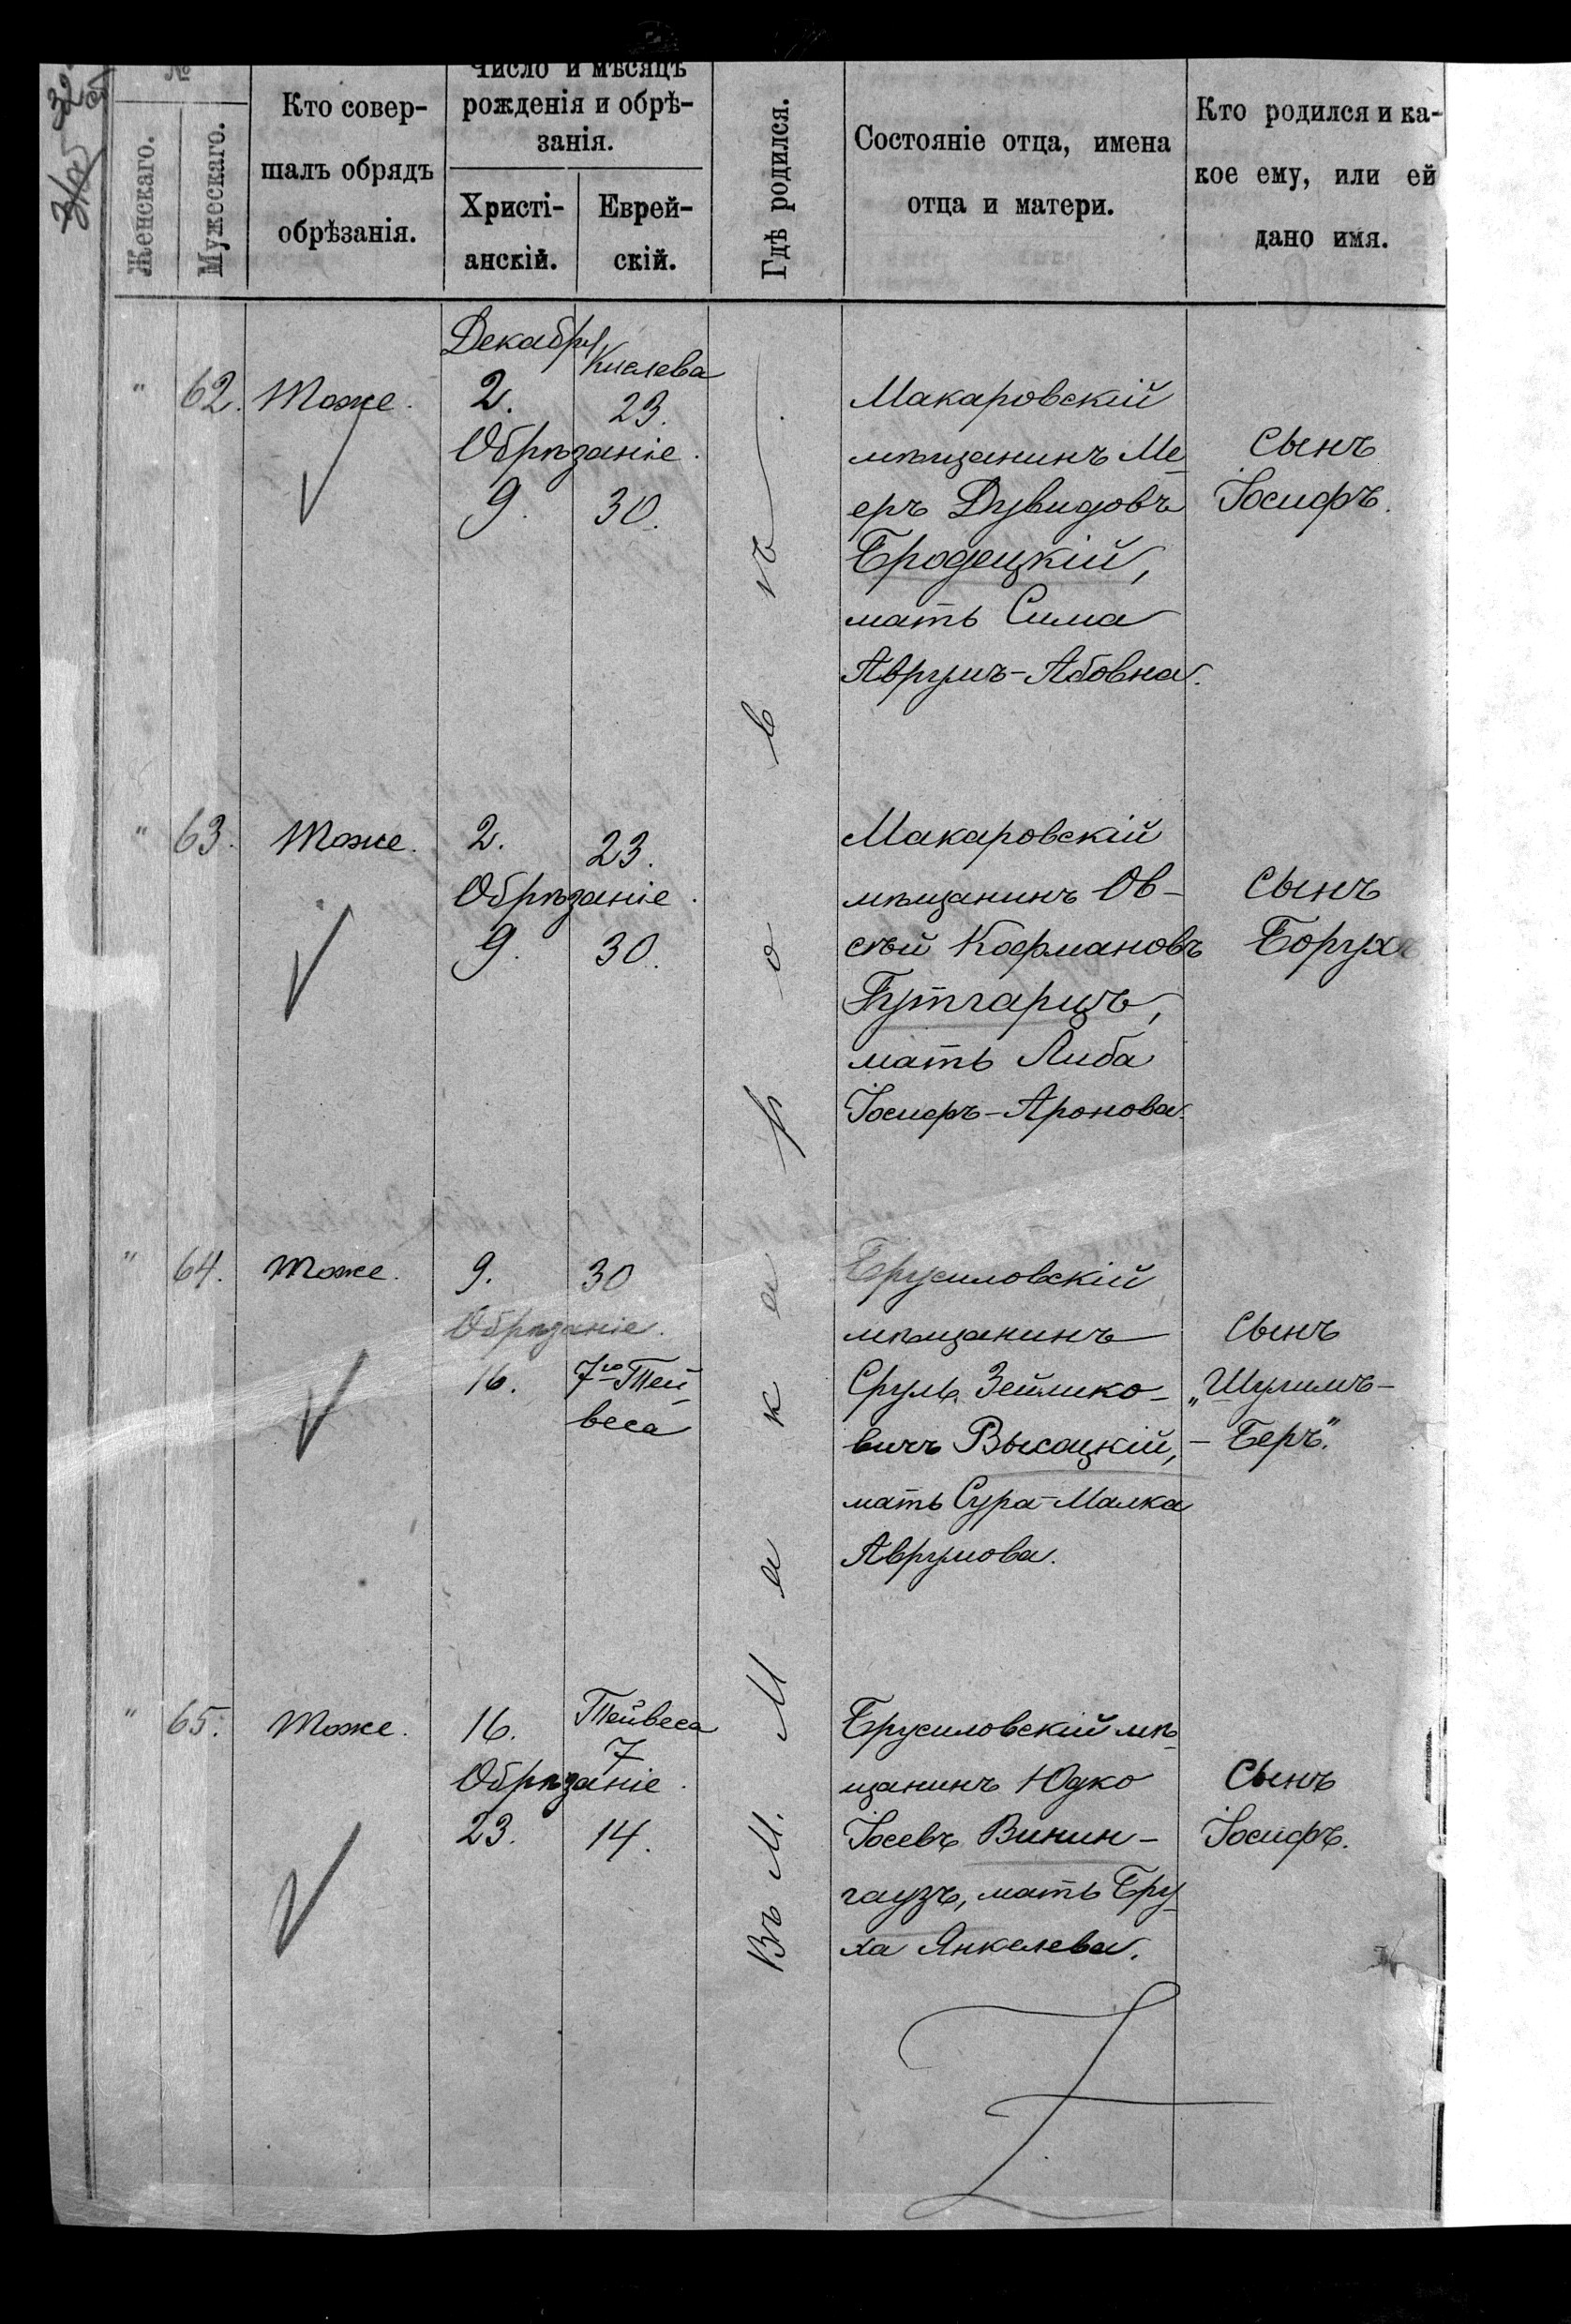 №
Женскаго.
Мужескаго.
Кто совер-
шалъ обрядъ
обрѣзанія.
Число и мѣсяцъ
рожденія и обрѣ-
занія.
Христі-
анскій.
Еврей-
скій.
Гдѣ родился.
Состояніе отца, имена
отца и матери.
Кто родился и ка-
кое ему, или ей
дано имя.
Въ М. Макаровѣ
Декабря
Кислева
" 62. Тоже. 2. 23.
Обрѣзаніе.
9. 30.
Макаровскій
мѣщанинъ Ме-
еръ Дувидовъ
Бродецкій,
мать Сима
Аврумъ-Абовна.
Сынъ
Іосифъ.
" 63. Тоже. 2. 23.
Обрѣзаніе.
9. 30.
Макаровскій
мѣщанинъ Ов-
сѣй Кофмановъ
Гутгарцъ,
мать Либа
Іосифъ-Аронова.
Сынъ
Борухъ
" 64. Тоже. 9. 30
Обрѣзаніе.
16. 7го Тей-
веса
Брусиловскій
мѣщанинъ
Сруль Зейлико-
вичъ Высоцкій,
мать Сура-Малка
Аврумова.
Сынъ
„Шулимъ-
-Беръ".
" 65. Тоже. 16. Тейвеса
7
Обрѣзаніе.
23. 14.
Брусиловскій мѣ-
щанинъ Юдко
Іосевъ Винин-
гаузъ, мать Бру-
ха Янкелева.
Сынъ
Іосифъ.